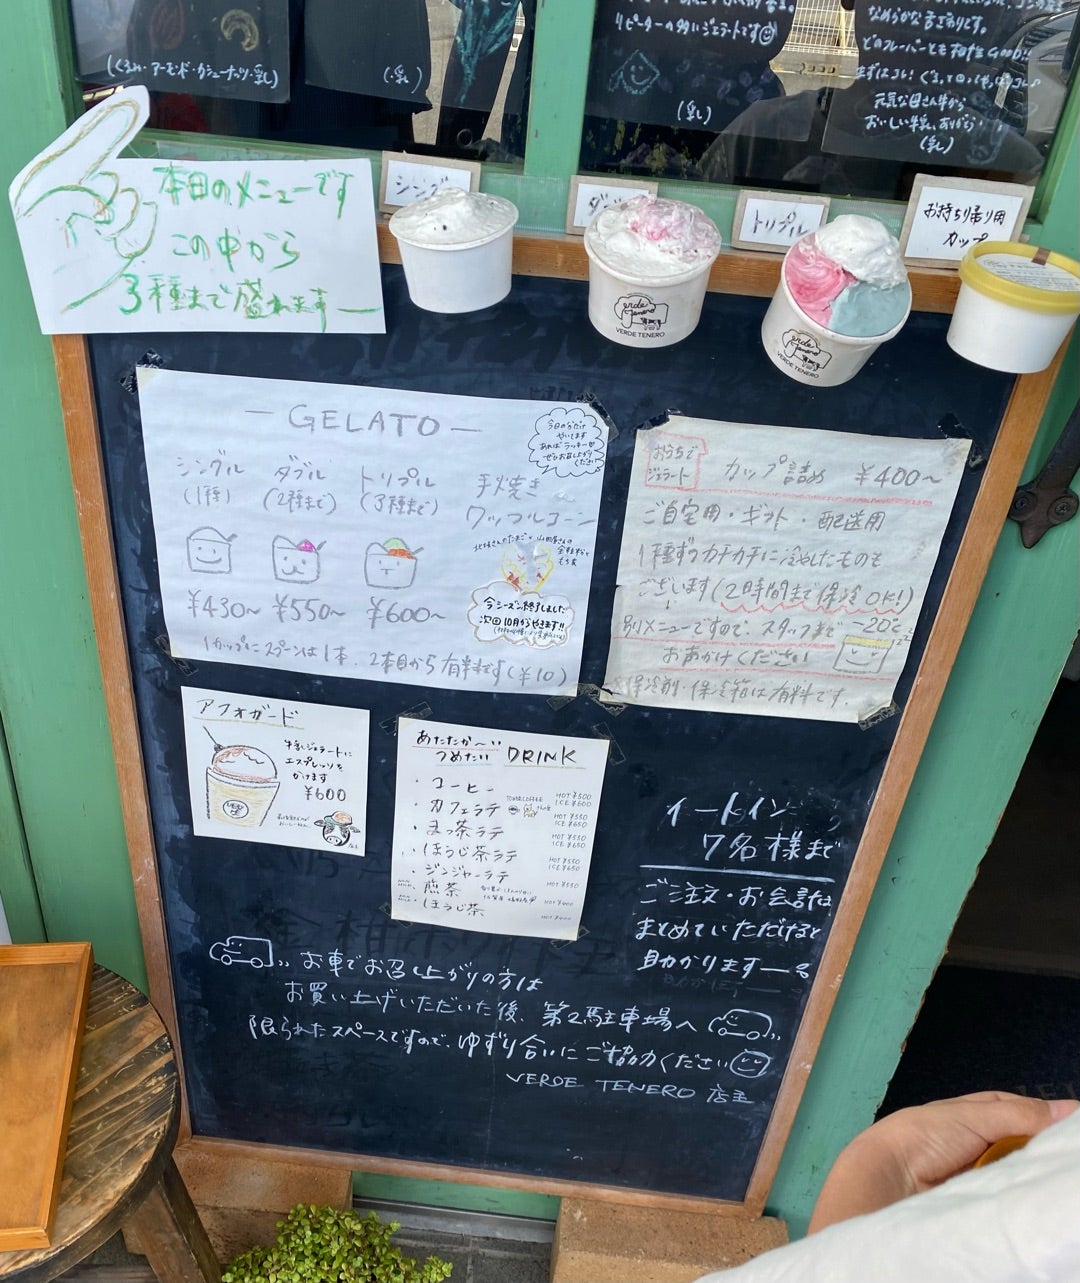 (くるみ・アーモンド・カシューナッツ・乳)
(・乳)
リピーターの多いジェラートです
(乳)
なめらかな舌ざわりです。
どのフレーバーとも相性GOOD!!
元気な母さん牛から
おいしい牛乳、ありがとう
(乳)
本日のメニューです
この中から
3種まで盛れます
シングル
ダブル
トリプル
お持ち帰り用
カップ
Verde
Tenero
VERDE TENERO
Verde
Tenero
VERDE TENERO
— GELATO —
今日の分だけ
やいてます
あればラッキー
ぜひお召し上がり
ください
シングル
(1種)
ダブル
(2種まで)
トリプル
(3種まで)
手焼き
ワッフルコーン
¥430~
¥550~
¥600~
今シーズン終了しました
次回10月からやきます!!
1カップにスプーンは1本、2本目から有料です(¥10)
おうちで
ジェラート
カップ詰め ¥400~
ご自宅用・ギフト・配送用
1種ずつカチカチに冷やしたものも
ございます(2時間まで保冷OK!)
別メニューですので、スタッフまで
-20℃
お声がけください
※保冷剤・保冷箱は有料です。
アフォガード
牛乳ジェラートに
エスプレッソを
かけます
¥600
あたたか〜い
つめたい DRINK
・コーヒー HOT ¥500
ICE ¥600
・カフェラテ HOT ¥550
ICE ¥650
・まっ茶ラテ HOT ¥550
ICE ¥650
・ほうじ茶ラテ HOT ¥550
ICE ¥650
・ジンジャーラテ HOT ¥550
・煎茶 HOT ¥400
・ほうじ茶 HOT ¥400
イートイン
7名様まで
ご注文・お会計は
まとめていただけると
助かります
お車でお召し上がりの方は
お買い上げいただいた後、第2駐車場へ
限られたスペースですので、ゆずり合いにご協力ください
VERDE TENERO 店主